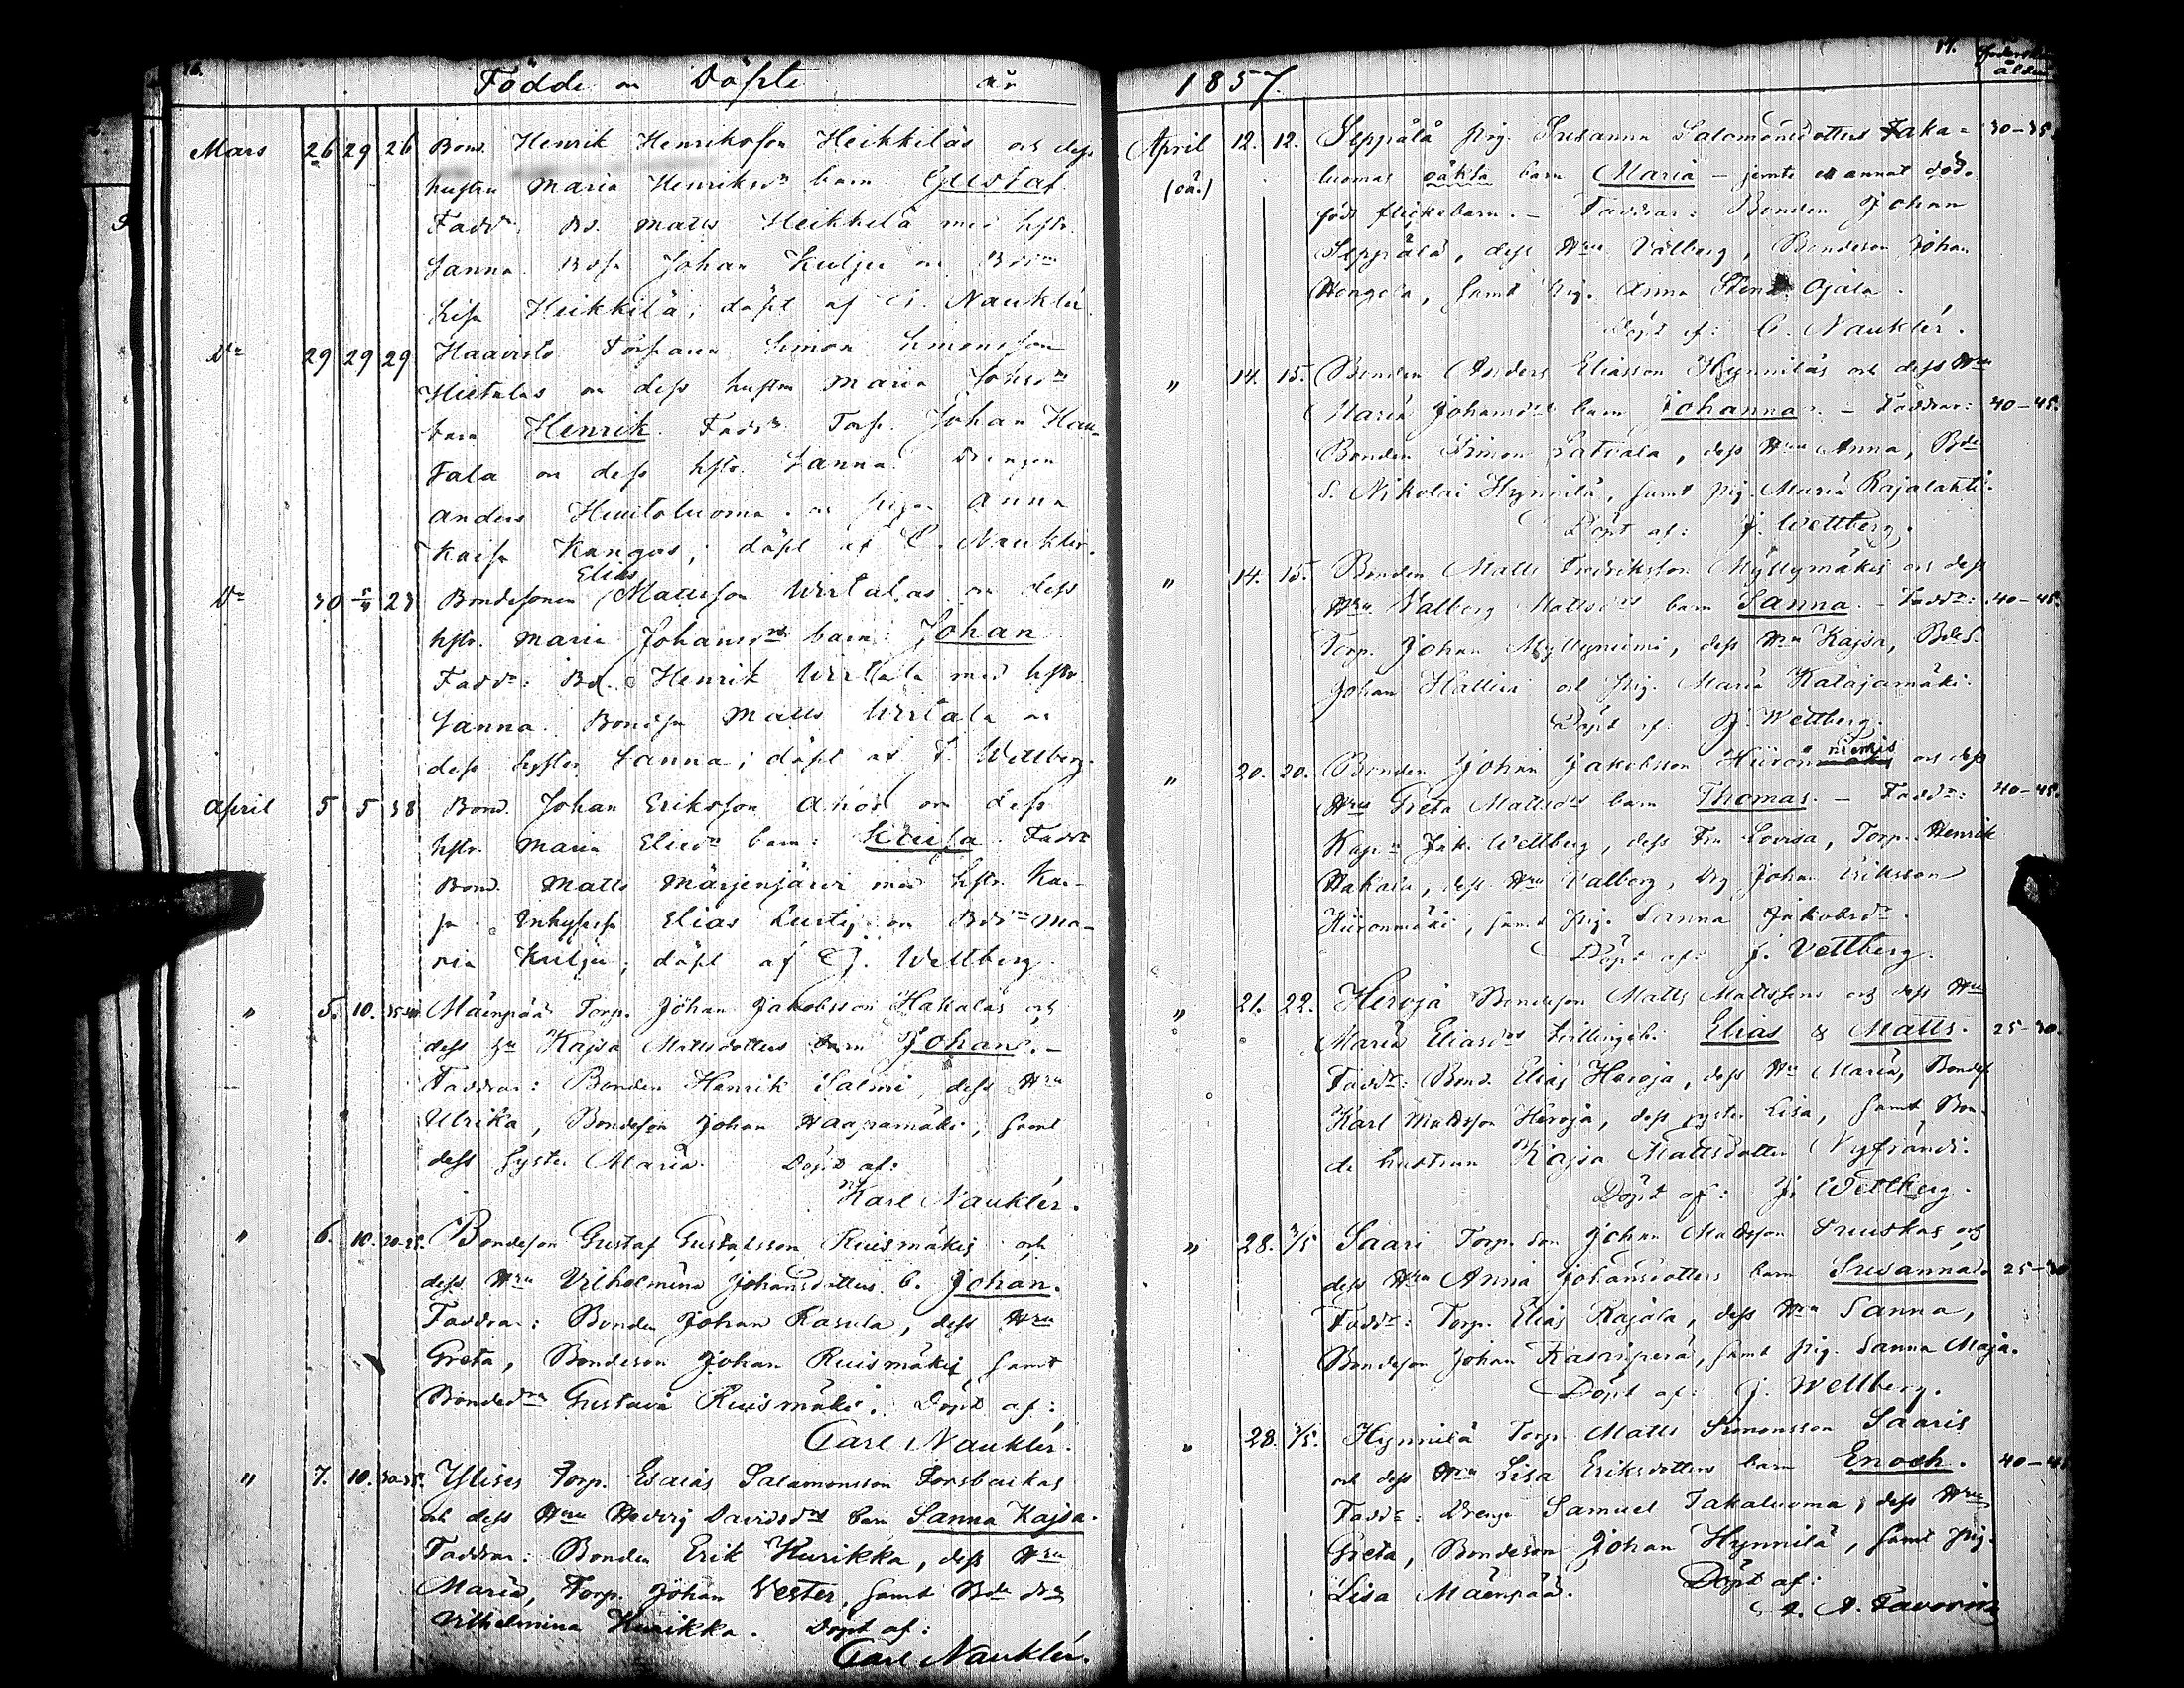 Födde o Döpte år
Mars 26 29 26 Bond. Henrik Henriksson Heikkiläs och dess
hustru Maria Henriksdr barn: Gustaf
Faddr: Bd. Matts Heikkilä med hstr.
Sanna. Bdsn Johan Kulju o Bdsn
Lisa Heikkilä; döpt af C. Nauklér
Do 29 29 29 Haavisto Torparen Simon Simonsson
Hietalas o dess hustru Maria Johsdr
barn Henrik. Faddr Torp. Johan Hau-
tala o dess hstr. Sanna. Drängen
Anders Huuloluoma o pigan Anna
Kaisa Kangas; döpt af C. Nauklér.
Elias
Do 30 5/4 23 Bondesonen Mattsson Wirtalas o dess
hstr. Maria Johansdr barn: Johan
Faddr: Bd. Henrik Wirtala med hstr
Sanna. Bondsn Matts Wirtala o
dess syster Sanna; döpt af J. Wettberg.
April 5 5 38 Bond. Johan Eriksson Ahos o dess
hstr. Maria Eliedr barn: Kaisa. Faddr
Bond. Matts Märjenjärvi med hstr. Kai-
sa. Inhyses Elias Lustig o Bdsdr Ma-
ria Kulju; döpt af J. Wettberg.
" 5. 10. Mäenpää Torp. Johan Jakobsson Hakalas och
dess Hu Kajsa Mattsdotters barn Johan. –
Faddrar: Bonden Henrik Salmi, dess Hru
Ulrika, Bondeson Johan Haapamäki, samt
dess syster Maria. Döpt af:
Karl Nauklér.
" 6. 10. 20-25. Bondeson Gustaf Gustafsson Ruismäkis och
dess Hru Vilhelmina Johansdotters b. Johan.
Faddrar: Bonden Johan Rasula, dess Hru
Greta, Bondeson Johan Ruismäki, samt
Bondedr Gustava Ruismäki. Döpt af:
Carl Nauklér.
" 7. 10. 30-35. Ylises Torp. Esaias Salamonsson Forsbackas
och dess Hru Hedvig Davidsdrs barn Sanna Kajsa.
Faddrar: Bonden Erik Kurikka, dess Hru
Maria, Torp. Johan Vester, samt Bde dr
Vilhelmina Kurikka. Döpt af:
Carl Nauklér.
1857.
April 12. 12. Seppälä pig. Susanna Salomonsdotters Taka- 30-35.
(oä.) luomas oäkta barn Maria – jemte et annat död-
födt flickebarn. – Faddrar: Bonden Johan
Seppälä, dess Hru Valberg, Bondeson Johan
Hengela, samt pig. Anna Ojala.
Döpt af: C. Nauklér.
" 14. 15. Bonden Anders Eliasson Hynniläs och dess Hru
Maria Johansdrs barn Johanna. – Faddrar: 40-45.
Bonden Simon Latvala, dess Hru Anna, Bde
S. Nikolai Hynnilä, samt pig. Maria Rajalahti.
Döpt af: J. Wettberg.
" 14. 15. Bonden Matts Fredriksson Myllymäkis och dess
Hru Valberg Mattsdrs barn Sanna. – Faddr: 40-45.
Torp. Johan Myllyniemi, dess Hru Kajsa, Bde S.
Johan Hallien och pig. Maria Katajamäki.
Döpt af: J. Wettberg.
niemis
" 20. 20. Bonden Johan Jakobsson Hiironmäkis och dess
Hru Greta Mattsdrs barn Thomas. – Faddr: 40-45.
Kapn Jak. Wettberg, dess Fru Lovisa, Torp. Henrik
Hakala, dess Hru Valberg, Drg Johan Eriksson
Hiironmäki, samt pig. Sanna Jakobsdr.
Döpt af: J. Vettberg.
" 21. 22. Heroja Bondeson Matts Mattssons och dess Hru
Maria Eliasdrs tvillingeb. Elias & Matts. 25-30.
Faddr: Bond. Elias Heroja, dess Hu Maria, Bondes
Karl Mattsson Heroja, dess syster Lisa, samt Bon-
de hustrun Kajsa Mattsdotter Nyfrändi.
Döpt af: J. Wettberg.
" 28. 3/5 Saari Torp. Son Johan Mattsson och
dess Hru Anna Johansdotters barn Susanna. 25-30
Faddr: Torp. Elias Rajala, dess Hru Sanna,
Bondeson Johan Kasarinperä, samt pig. Sanna Maja.
Döpt af: J. Wettberg.
" 28. 3/5. Hynnilä Torp. Matts Simonsson Saaris
och dess Hru Lisa Eriksdotters barn Enoch. 40-45
Faddr: Dreng Samuel Takaluoma, dess Hru
Greta, Bondeson Johan Hynnilä, samt pig.
Lisa Mäenpää. Döpt af:
A. Favorin